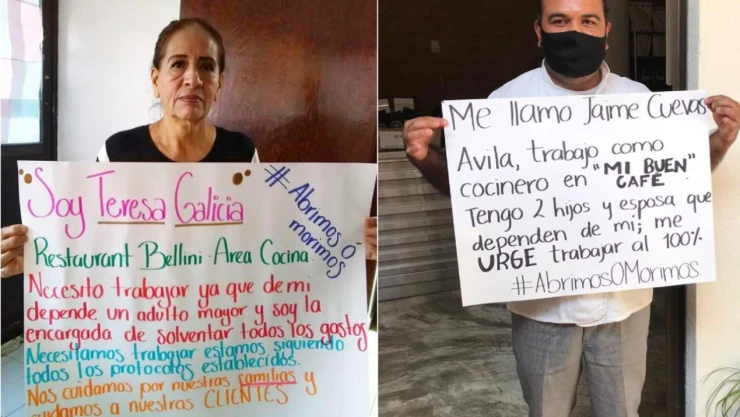 Soy Teresa Galicia
#Abrimos Ó
morimos
Restaurant Bellini - Area Cocina.
Necesito trabajar ya que de mi
depende un adulto mayor y soy la
encargada de solventar todos los gastos
Necesitamos trabajar estamos siguiendo
todos los protocolos establecidos.
Nos cuidamos por nuestras familias y
cuidamos a nuestros CLIENTES
Me llamo Jaime Cuevas
Avila, trabajo como
cocinero en "MI BUEN
CAFÉ"
Tengo 2 hijos y esposa que
dependen de mi; me
URGE trabajar al 100%.
#AbrimosOMorimos.